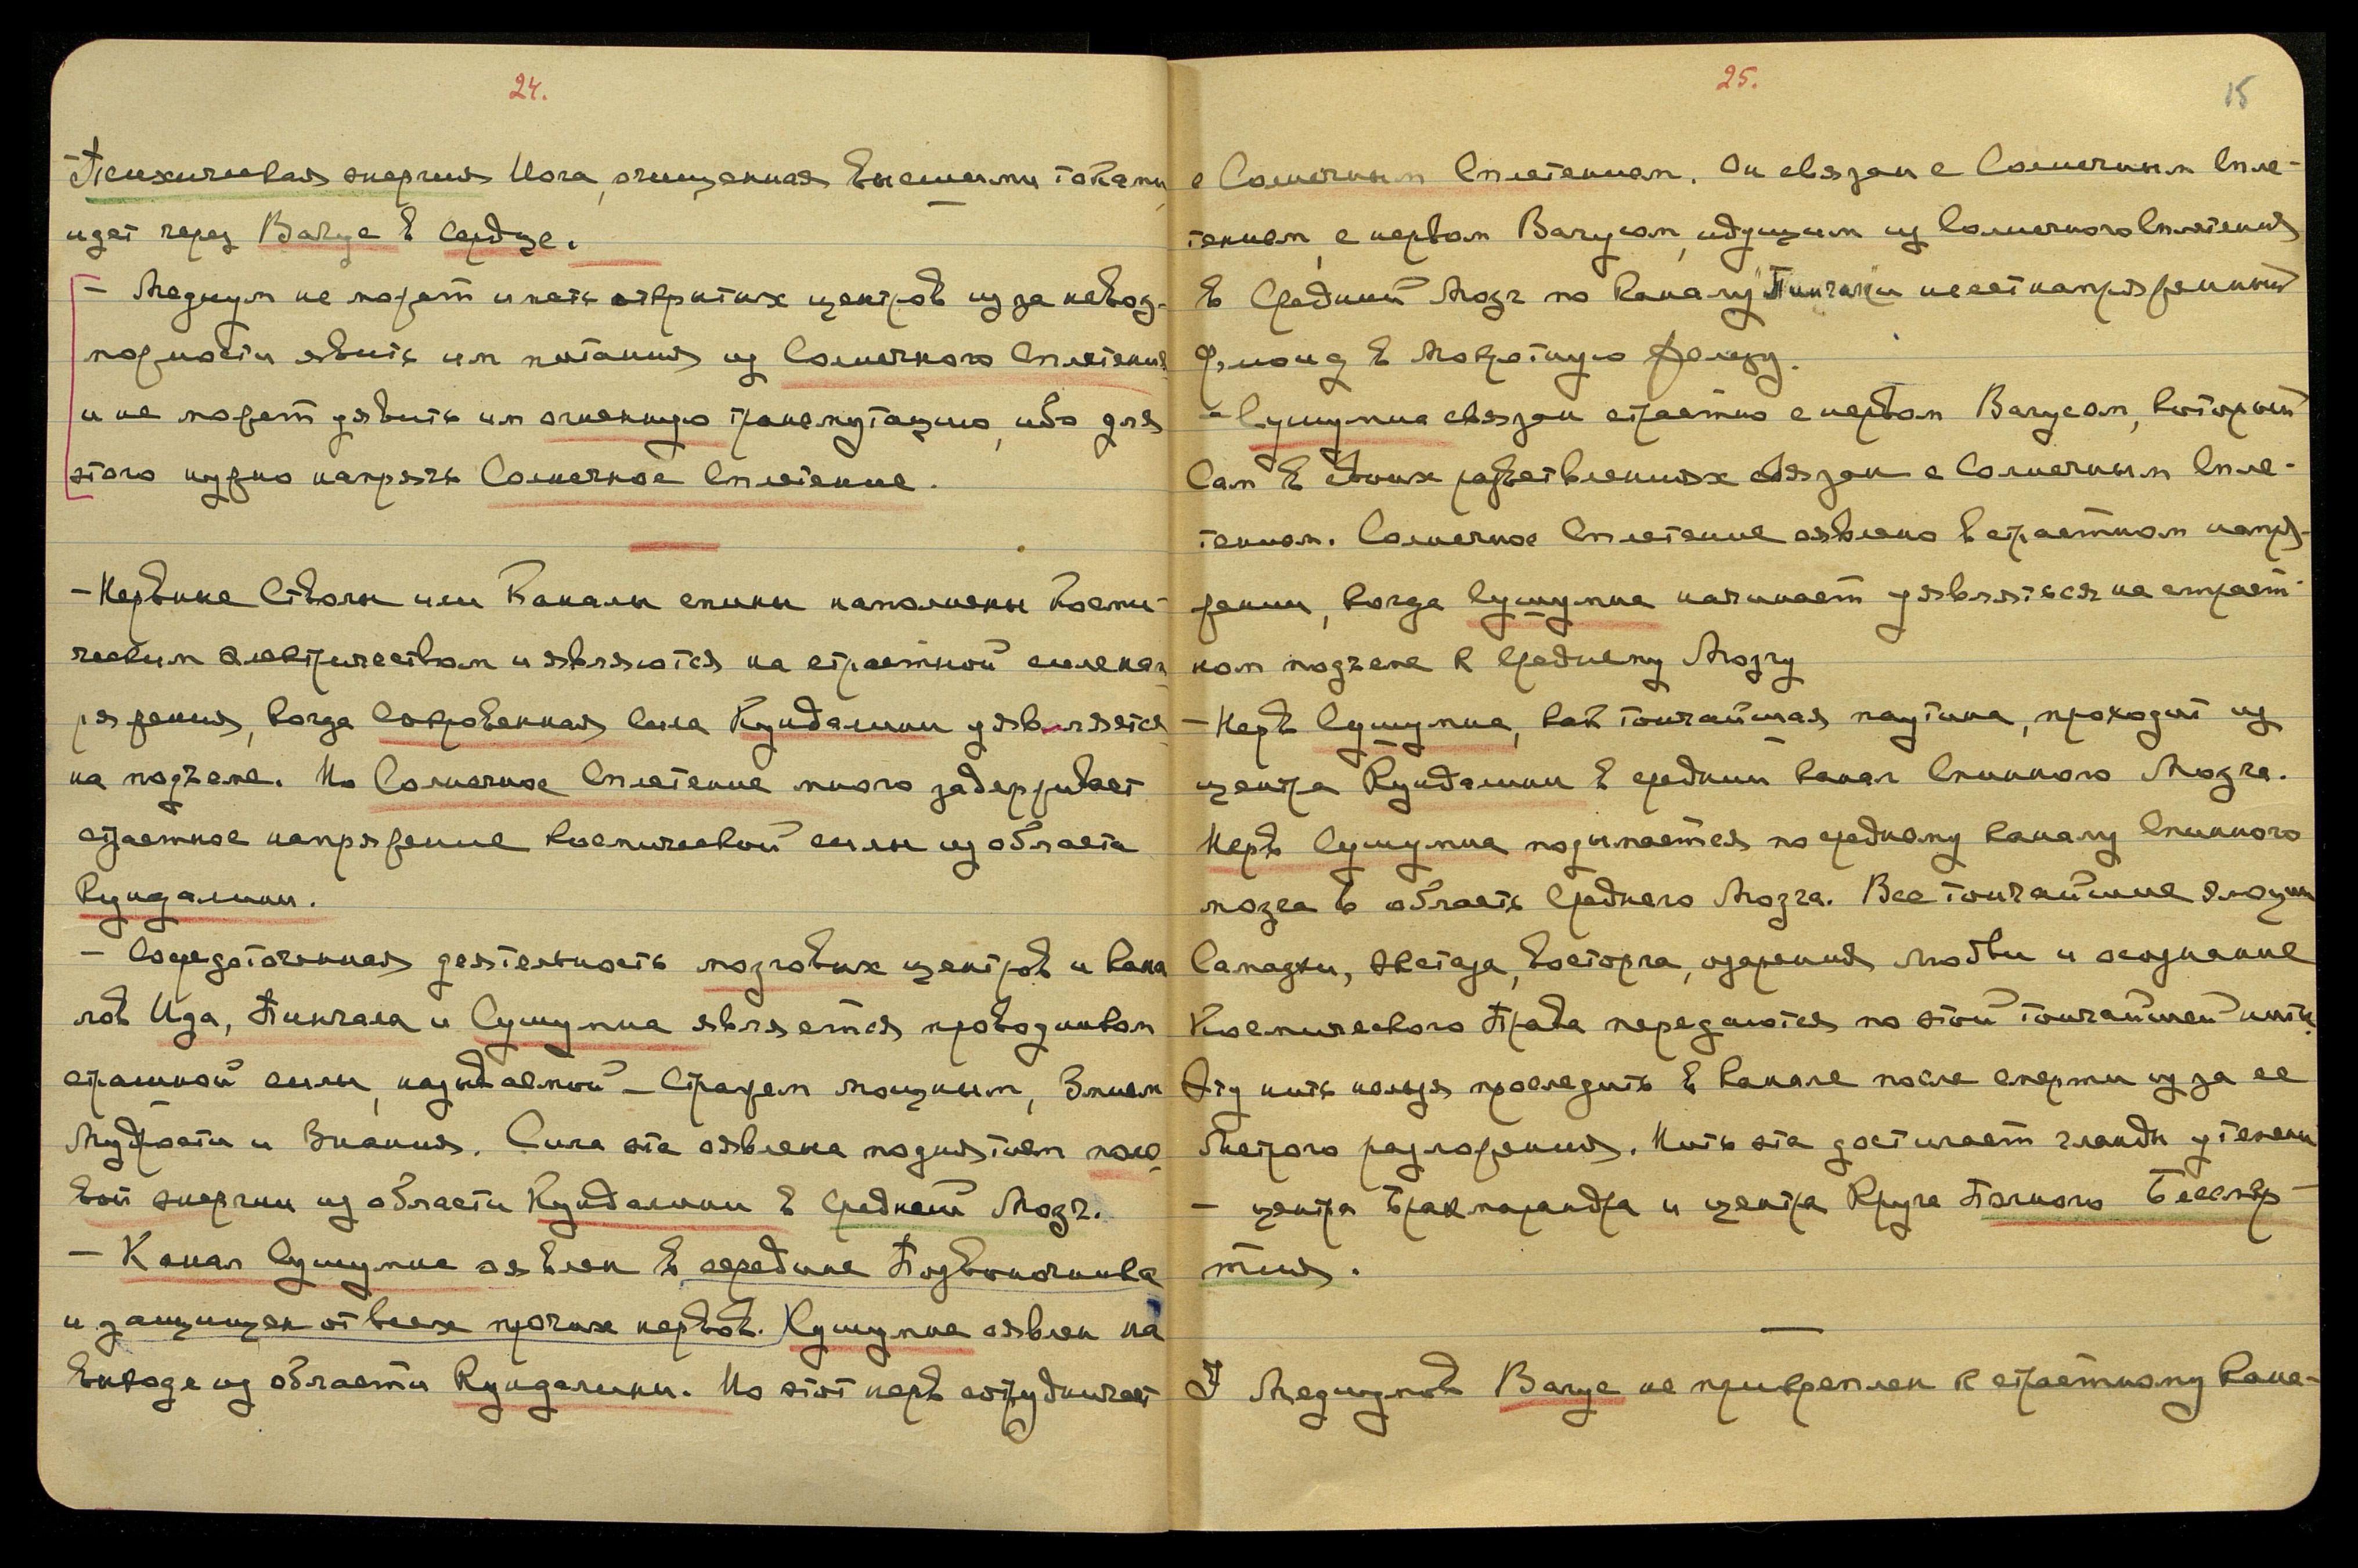 24.
-Психическая энергия Йога, очищенная Высшими токами,
идет через Вагус в сердце.
- Медиум не может иметь открытых центров из за невоз-
можности явить им питания из Солнечного Сплетения
и не может уявить им огненную трансмутацию, ибо для
этого нужно напрячь Солнечное Сплетение.
-Нервные Стволы или Каналы спины наполнены Косми-
ческим электричеством и являются на страстной силе нап-
ряжения, когда Сокровенная Сила Кундалини уявляется
на подъеме. Но Солнечное Сплетение много задерживает
страстное напряжение Космической силы из области
Кундалини.
- Сосредоточенная деятельность мозговых центров и кана
лов Ида, Пингала и Сушумна является проводником
страшной силы, называемой - Стражем мощным, Змием
Мудрости и Знания. Сила эта оявлена поднятием поло-
вой энергии из области Кундалини в Средний Мозг.
- Канал Сушумна оявлен в середине Позвоночника
и защищен от всех прочих нервов. Сушумна оявлен на
выходе из области Кундалини. Но этот нерв сотрудничает
25.
15
с Солнечным Сплетением. Он связан с Солнечным Спле-
тением, с нервом Вагусом, идущим из Солнечного Сплетения
в Средний Мозг по каналу "Пингалы" несет напряженный
Флюид в Мокротную железу.
- Сушумна связан страстно с нервом Вагусом, который
Сам в своих разветвлениях связан с Солнечным Спле-
тением. Солнечное Сплетение оявлено в страстном напря-
жении, когда Сушумна начинает уявляться на страст-
ном подъеме к Среднему Мозгу
- Нерв Сушумна, как тончайшая паутина, проходит из
центра Кундалини в средний канал Спинного Мозга.
Нерв Сушумна подымается по среднему каналу Спинного
мозга в область Среднего Мозга. Все тончайшие эмоции
Самадхи, экстаза, восторга, озарения любви и осознание
Космического Права передаются по этой тончайшей нити.
Эту нить нельзя проследить в канале после смерти из за ее
быстрого разложения. Нить эта достигает гланды у темени
- центра Брахмарандра и центра Круга Полного Бессмер-
тия.
У Медиумов Вагус не прикреплен к страстному кана-